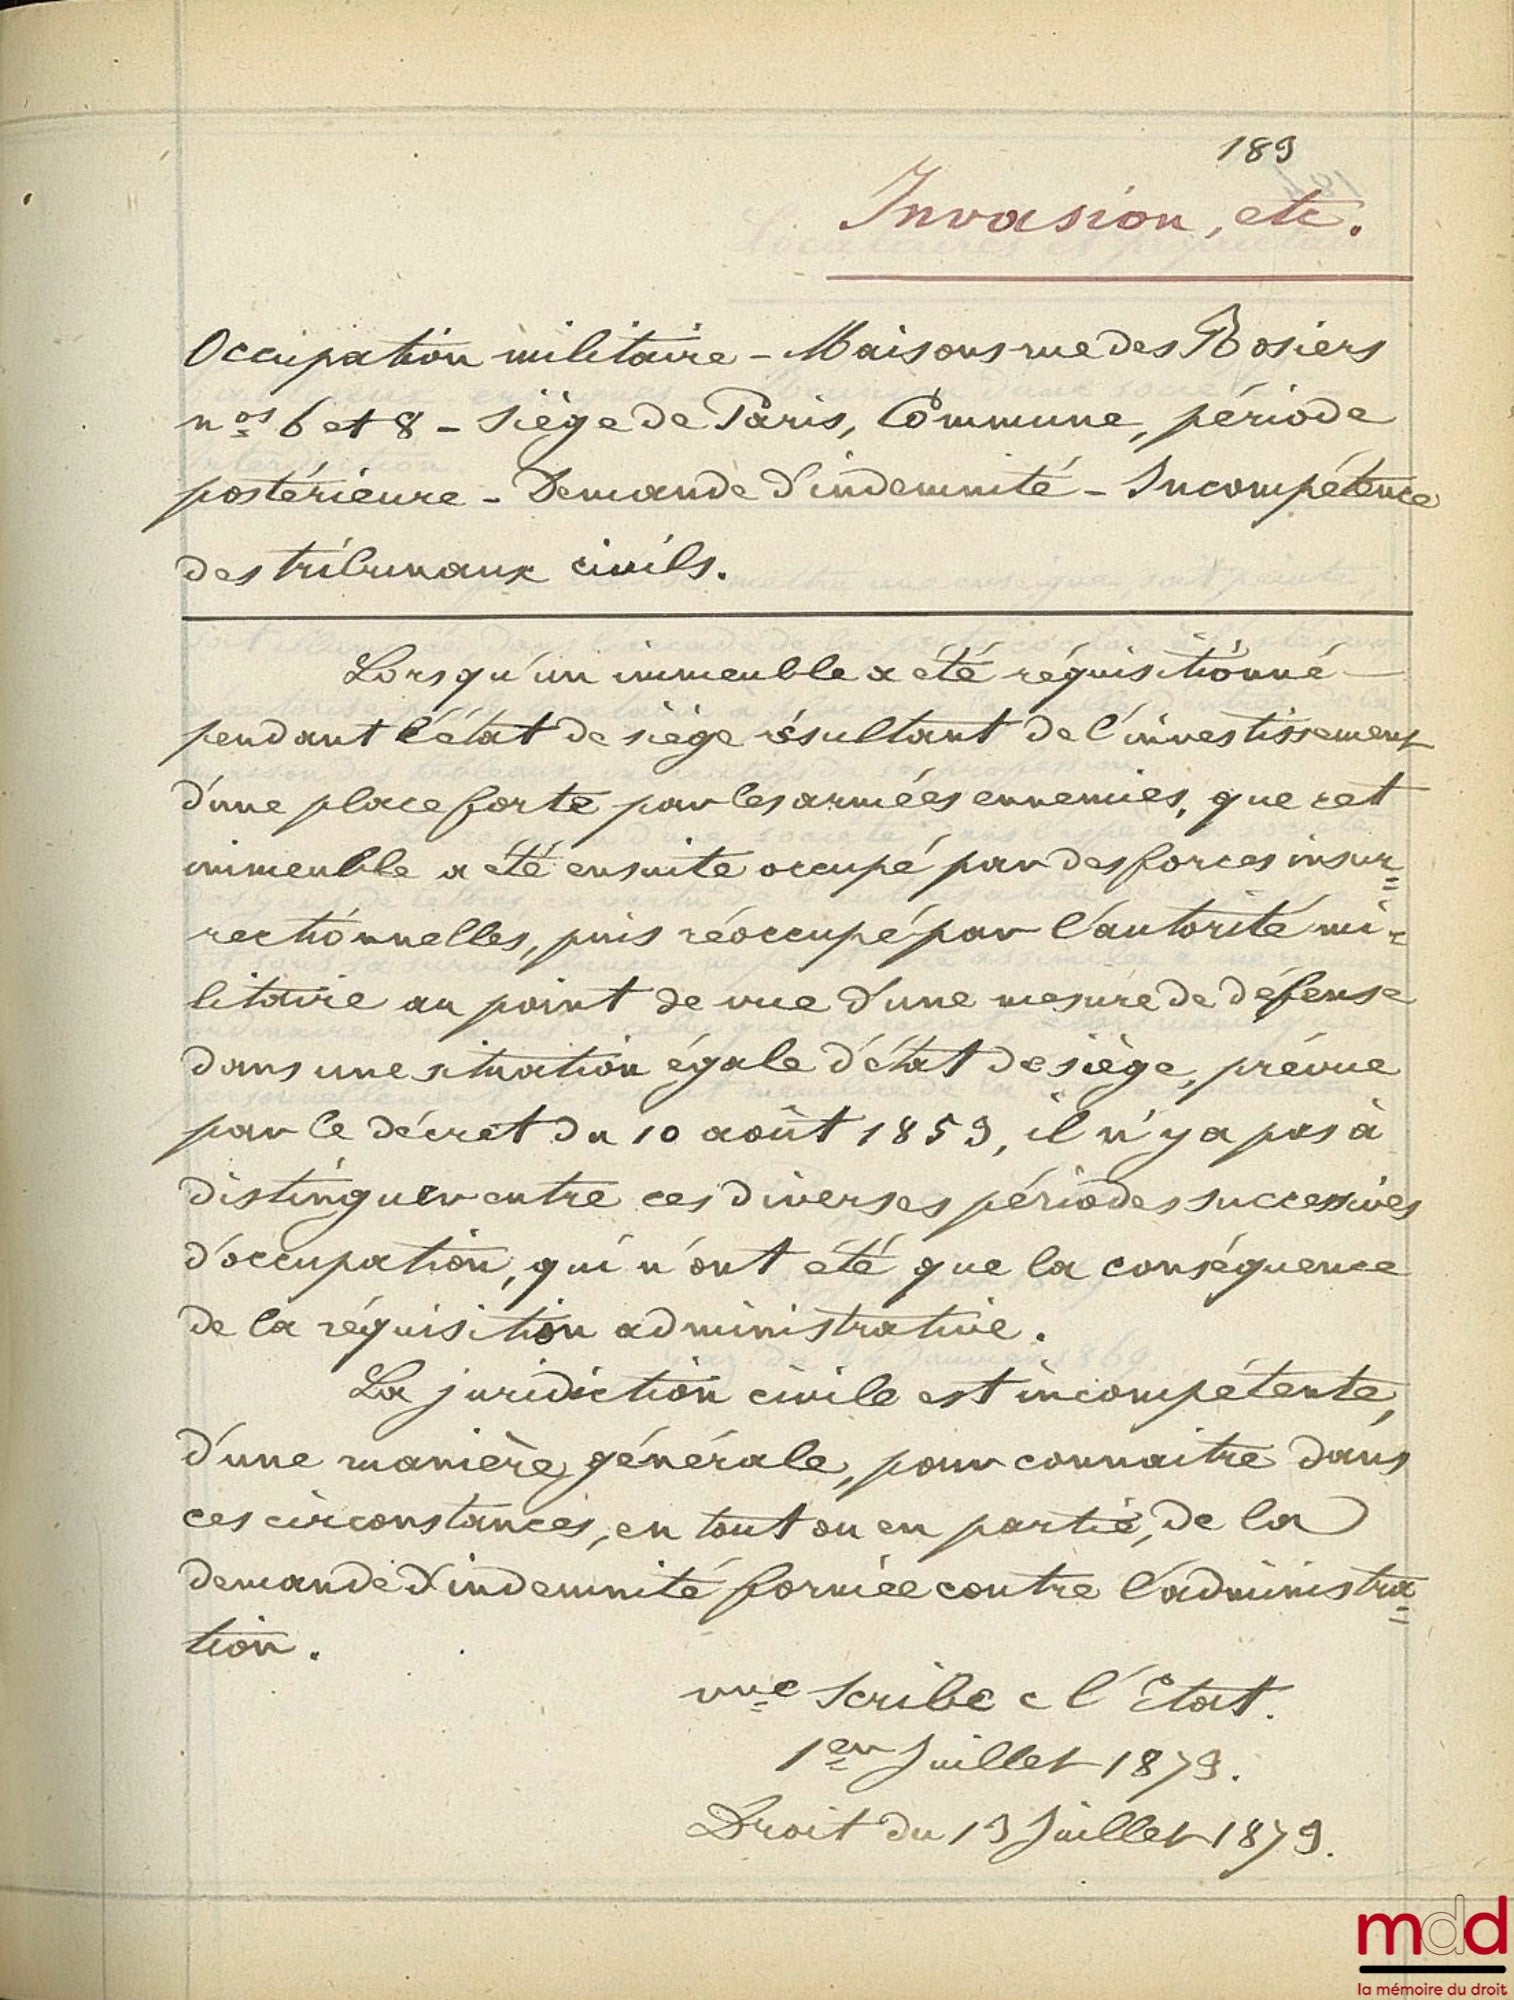 189
Invasion, etc.
Occupation militaire – Maisons rue des Rosiers
nos 6 et 8 – Siège de Paris, Commune, période
postérieure – Demande d'indemnité – Incompétence
des tribunaux civils.
Lorsqu'un immeuble a été réquisitionné
pendant l'état de siège résultant de l'investissement
d'une place forte par les armées ennemies, que cet
immeuble a été ensuite occupé par des forces insur=
rectionnelles, puis réoccupé par l'autorité mi-
litaire au point de vue d'une mesure de défense
dans une situation égale d'état de siège, prévue
par le décret du 10 août 1853, il n'y a pas à
distinguer entre ces diverses périodes successives
d'occupation, qui n'ont été que la conséquence
de la réquisition administrative.
La juridiction civile est incompétente,
d'une manière générale, pour connaitre dans
ces circonstances, en tout ou en partie, de la
demande d'indemnité formée contre l'administra=
tion.
vve Scribe c l'Etat.
1er Juillet 1879.
Droit du 13 Juillet 1879.
mdd
la mémoire du droit